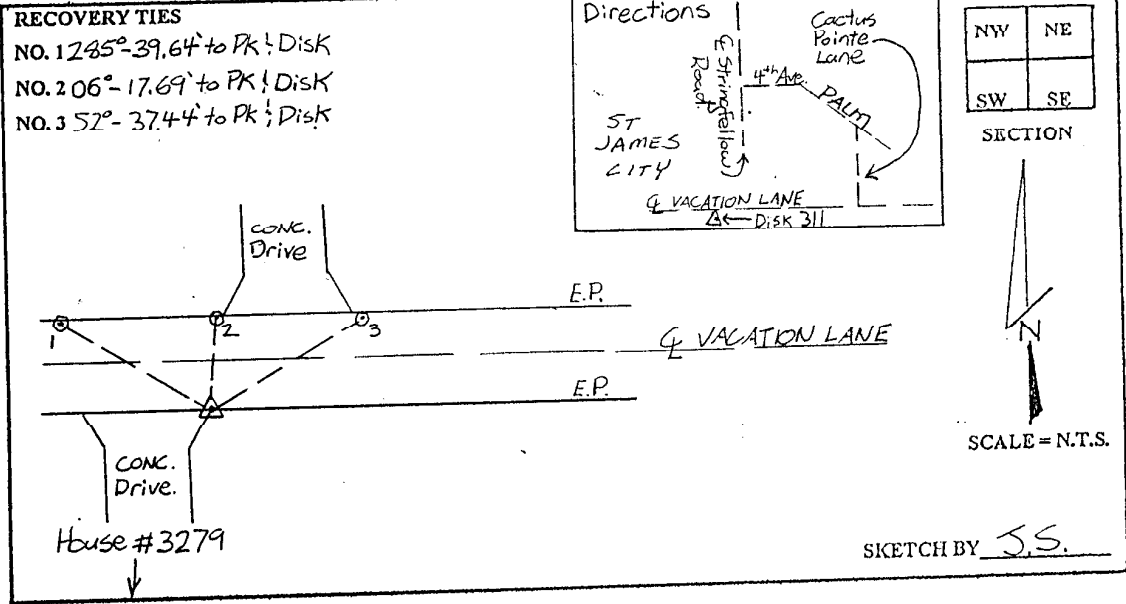 RECOVERY TIES
NO. 1 285°-39.64' to PK & Disk
NO. 2 06°-17.69' to PK & Disk
NO. 3 52°-37.44' to PK & Disk
Directions
℄ Stringfellow
Road
4th Ave.
Cactus
Pointe
Lane
PALM
ST
JAMES
CITY
℄ VACATION LANE
Disk 311
NW NE
SW SE
SECTION
CONC.
Drive
E.P.
1
2
3
℄ VACATION LANE
E.P.
N
SCALE = N.T.S.
CONC.
Drive.
House #3279
SKETCH BY J.S.